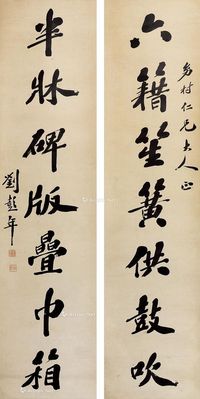 六籍笙簧供鼓吹
仁兄大人正
半牀碑版疊巾箱
劉彭年